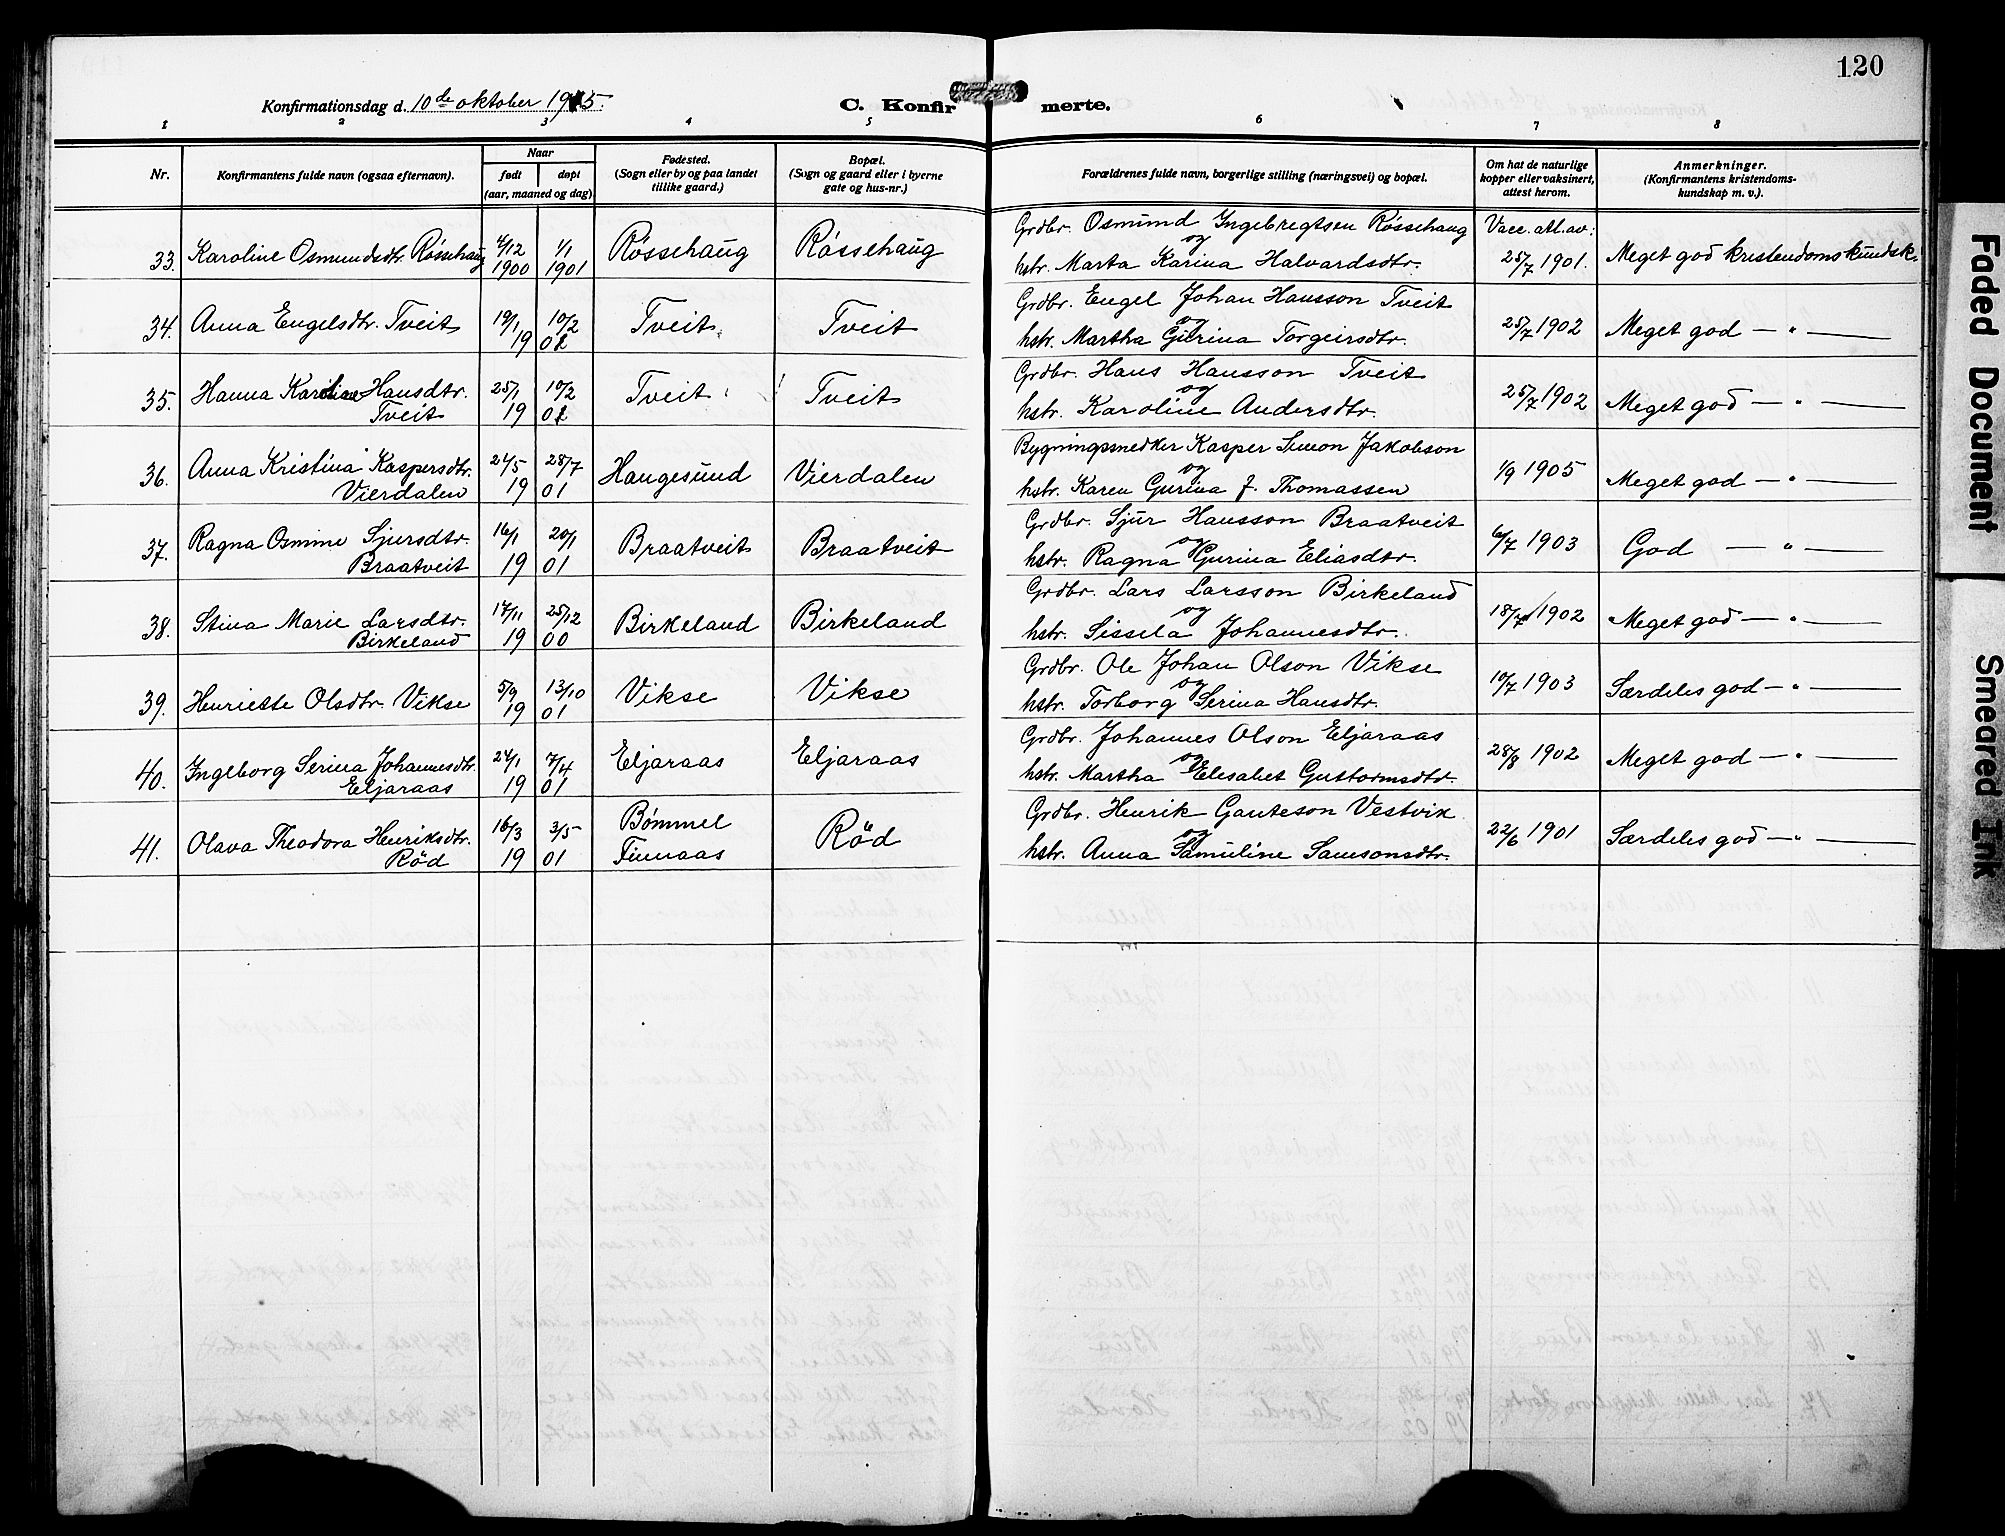 120
Konfirmationsdag d. 10de oktober 1915.
C. Konfirmerte.
1 2 3 4 5 6 7 8
Nr.
Konfirmantens fulde navn (ogsaa efternavn).
Naar
født døpt
(aar, maaned og dag)
Fødested.
(Sogn eller by og paa landet
tillike gaard.)
Bopæl.
(Sogn og gaard eller i byerne
gate og hus-nr.)
Forældrenes fulde navn, borgerlige stilling (næringsvei) og bopæl.
Om hat de naturlige
kopper eller vaksinert,
attest herom.
Anmerkninger.
(Konfirmantens kristendoms-
kundskap m. v.).
33. Karoline Osmundsdtr. Røssehaug 4/12 1900 1/1 1901 Røssehaug Røssehaug
Grdbr. Osmund Ingebregtsen Røssehaug
og
hstr. Marta Karina Halvardsdtr.
Vacc. att. av:
25/7 1901. Meget god kristendomskundsk.
34. Anna Engelsdtr. Tveit 19/1 10/2 1902 Tveit Tveit
Grdbr. Engel Johan Hansson Tveit
og
hstr. Martha Gurina Torgeirsdtr.
25/7 1902 Meget god — " —
35. Hanna Karoline Hansdtr.
Tveit
25/1 10/2 1902 Tveit Tveit
Grdbr. Hans Hansson Tveit
og
hstr. Karoline Andersdtr.
25/7 1902 Meget god — " —
36. Anna Kristina Kaspersdtr.
Vierdalen
24/5 28/7 1901 Haugesund Vierdalen
Bygningssnedker Kasper Simon Jakobson
og
hstr. Karen Gurina J. Thomassen
1/9 1905 Meget god — " —
37. Ragna Osmine Sjursdtr.
Braatveit
16/1 20/1 1901 Braatveit Braatveit
Grdbr. Sjur Hansson Braatveit
og
hstr. Ragna Gurina Eliasdtr.
6/7 1903 God — " —
38. Stina Marie Larsdtr.
Birkeland
17/11 25/12 1900 Birkeland Birkeland
Grdbr. Lars Larsson Birkeland
og
hstr. Sissela Johannesdtr.
18/7 1902 Meget god — " —
39. Henriette Olsdtr. Vikse 5/9 13/10 1901 Vikse Vikse
Grdbr. Ole Johan Olson Vikse
og
hstr. Torborg Serina Hansdtr.
10/7 1903 Særdeles god — " —
40. Ingeborg Serina Johannesdtr.
Eljaraas
24/1 7/4 1901 Eljaraas Eljaraas
Grdbr. Johannes Olson Eljaraas
og
hstr. Martha Elesabet Guttormsdtr.
28/8 1902 Meget god — " —
41. Olava Theodora Henriksdtr.
Röd
16/3 3/5 1901 Bømmel
Finnaas
Röd
Grdbr. Henrik Gauteson Vestvik
og
hstr. Anna Samuline Samsonsdtr.
22/6 1901 Særdeles god — " —
Faded Document
Smeared Ink